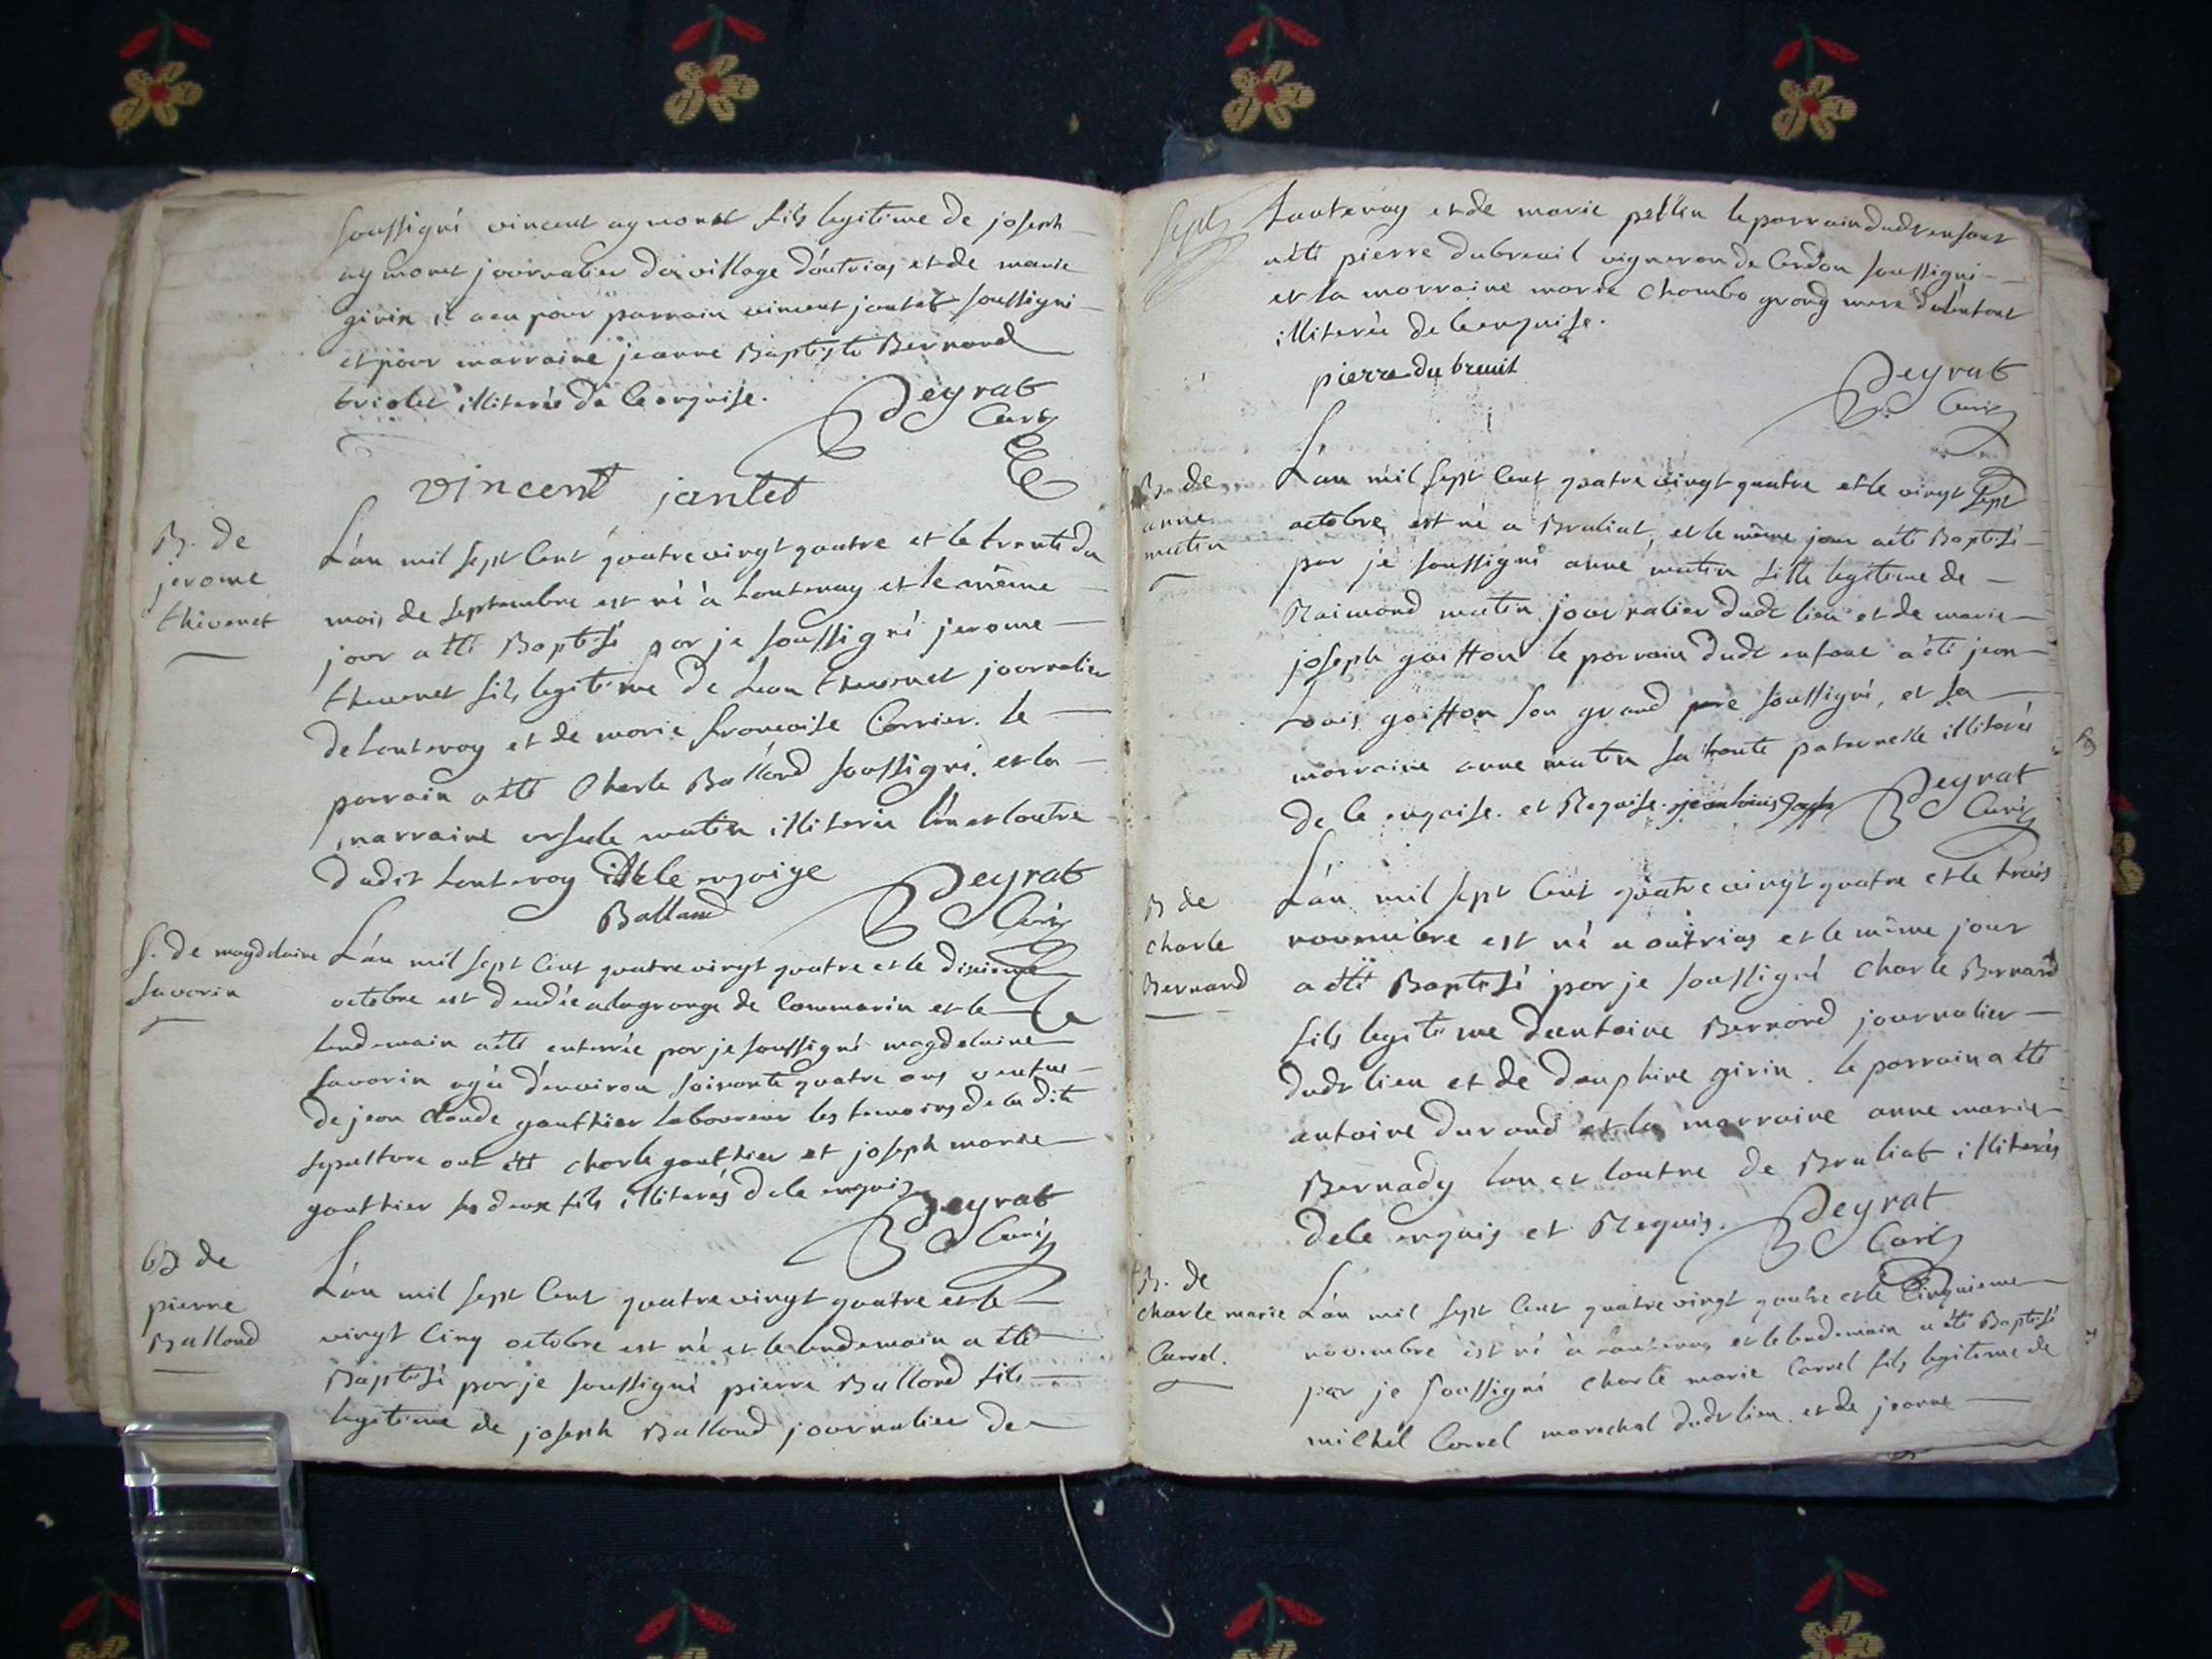 soussigné vincent aymonet fils legitime de joseph
aymonet journalier du village d'outrias et de marie
girin il a eu pour parrain vincent jantet soussigné
et pour marraine jeanne Baptiste Bernard
illiterée de ce enquise.
Peyrat
Curé
vincent jantet
B. de
jerome
thévenet
L'an mil sept Cent quatre vingt quatre et le trente du
mois de septembre est né à Lantenay et le même
jour a été Baptisé par je soussigné jerome
thevenet fils legitime de Lean thevenet journalier
de Lantenay et de marie francoise Carrier. le
parrain a été Charle Balland soussigné. et la
marraine ursule mutin illiterée l'un et l'autre
dudit Lantenay de ce enquise
Balland
Peyrat
Curé
S. de magdelaine
Savarin
L'an mil sept Cent quatre vingt quatre et le dixieme
octobre est decédée a la grange de Commarin et le
lendemain a été enterrée par je soussigné magdelaine
Savarin agée d'environ soixante quatre ans veufve
de jean claude gauthier laboureur les temoins de la dite
sepulture ont été charle gauthier et joseph marie
gauthier ses deux fils illiterés de ce enquis
Peyrat
Curé
B de
pierre
Balland
L'an mil sept Cent quatre vingt quatre et le
vingt Cinq octobre est né et le lendemain a été
Baptisé par je soussigné pierre Balland fils
legitime de joseph Balland journalier de
Lantenay et de marie peslin le parrain dudt enfant
a été pierre dubreuil vigneron de Cerdon soussigné
et la marraine marie Chambo grand mere de l'enfant
illiterée de ce enquise.
pierre du breuil
Peyrat
Curé
B. de
anne
mutin
L'an mil sept Cent quatre vingt quatre et le vingt sept
octobre est né a Bruliat, et le même jour a été Baptisé
par je soussigné anne mutin fille legitime de
Raimond mutin journalier dudt lieu et de marie
joseph goiffon le parrain dudt enfant a été jean
Louis goiffon son grand pere soussigné, et sa
marraine anne mutin sa tante paternelle illiterée
de ce enquise. et Requise. jean louis
Peyrat
Curé
B de
charle
Bernard
L'an mil sept Cent quatre vingt quatre et le trois
novembre est né a outrias et le même jour
a été Baptisé par je soussigné charle Bernard
fils legitime d'entoine Bernard journalier
dudt lieu et de dauphine girin. le parrain a été
antoine durand et la marraine anne marie
Bernady l'un et l'autre de Bruliat illiterés
de ce enquis et Requis.
Peyrat
Curé
B. de
charle marie
Carrel.
L'an mil sept Cent quatre vingt quatre et le Cinquieme
novembre est né à Lantenay et le lendemain a été Baptisé
par je soussigné charle marie Carrel fils legitime de
michel Carrel marechal dudt lieu et de jeanne